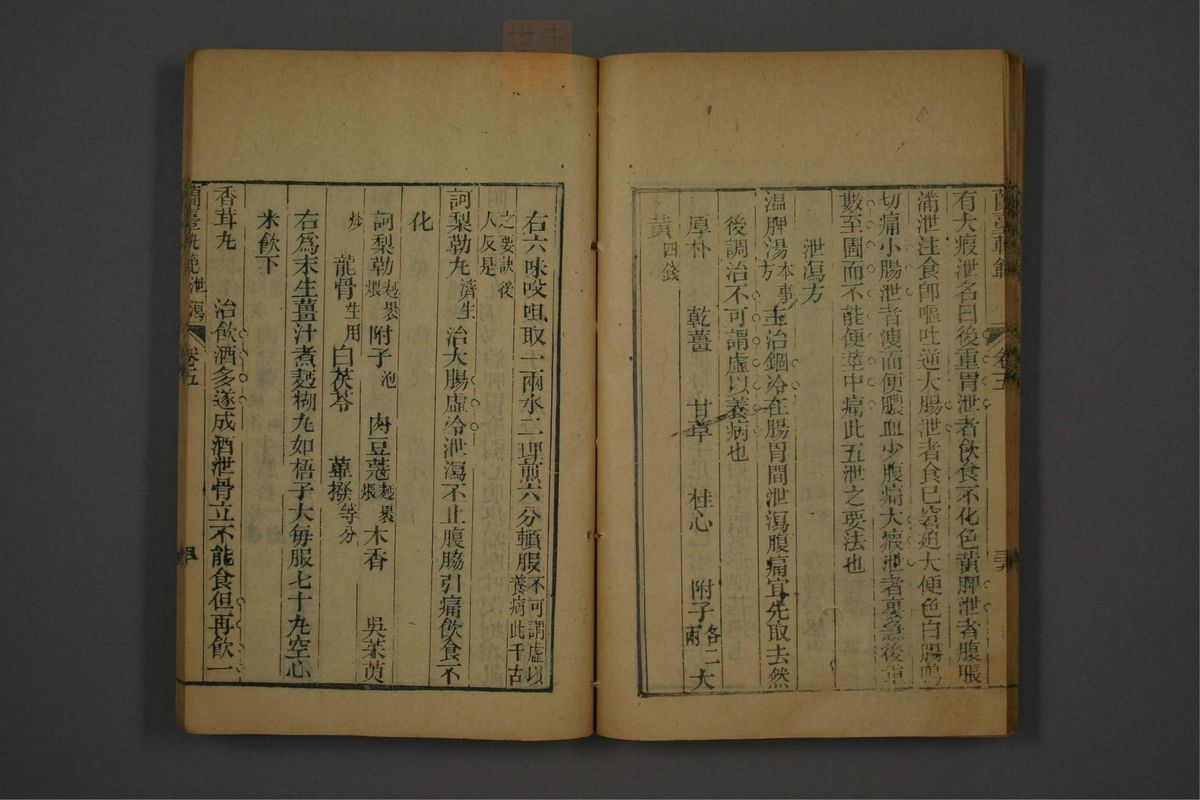 蘭臺軌範 卷五
有大瘕泄名曰後重胃泄者飲食不化色黃脾泄者腹脹
滿泄注食卽嘔吐逆大腸泄者食已窘迫大便色白腸鳴
切痛小腸泄者溲而便膿血少腹痛大瘕泄者裏急後重
數至圊而不能便莖中痛此五泄之要法也
泄瀉方
溫脾湯本事方 主治錮冷在腸胃間泄瀉腹痛宜先取去然
後調治不可謂虛以養病也
厚朴 乾薑 甘草 桂心 附子各二兩 大
黃四錢
右六味㕮咀取一兩水二
煎六分頓服不可謂虛以養病此千古
之要訣後人反是
訶梨勒丸濟生 治大腸虛冷泄瀉不止腹脇引痛飲食不
化
訶梨勒 附子泡 肉豆蔻 木香 吳茱萸
炒 龍骨生用 白茯苓 蓽撥等分
右爲末生薑汁煮麪糊丸如梧子大每服七十丸空心
米飲下
香茸丸 治飲酒多遂成酒泄骨立不能食但再飲一
蘭臺軌範 泄瀉 卷五